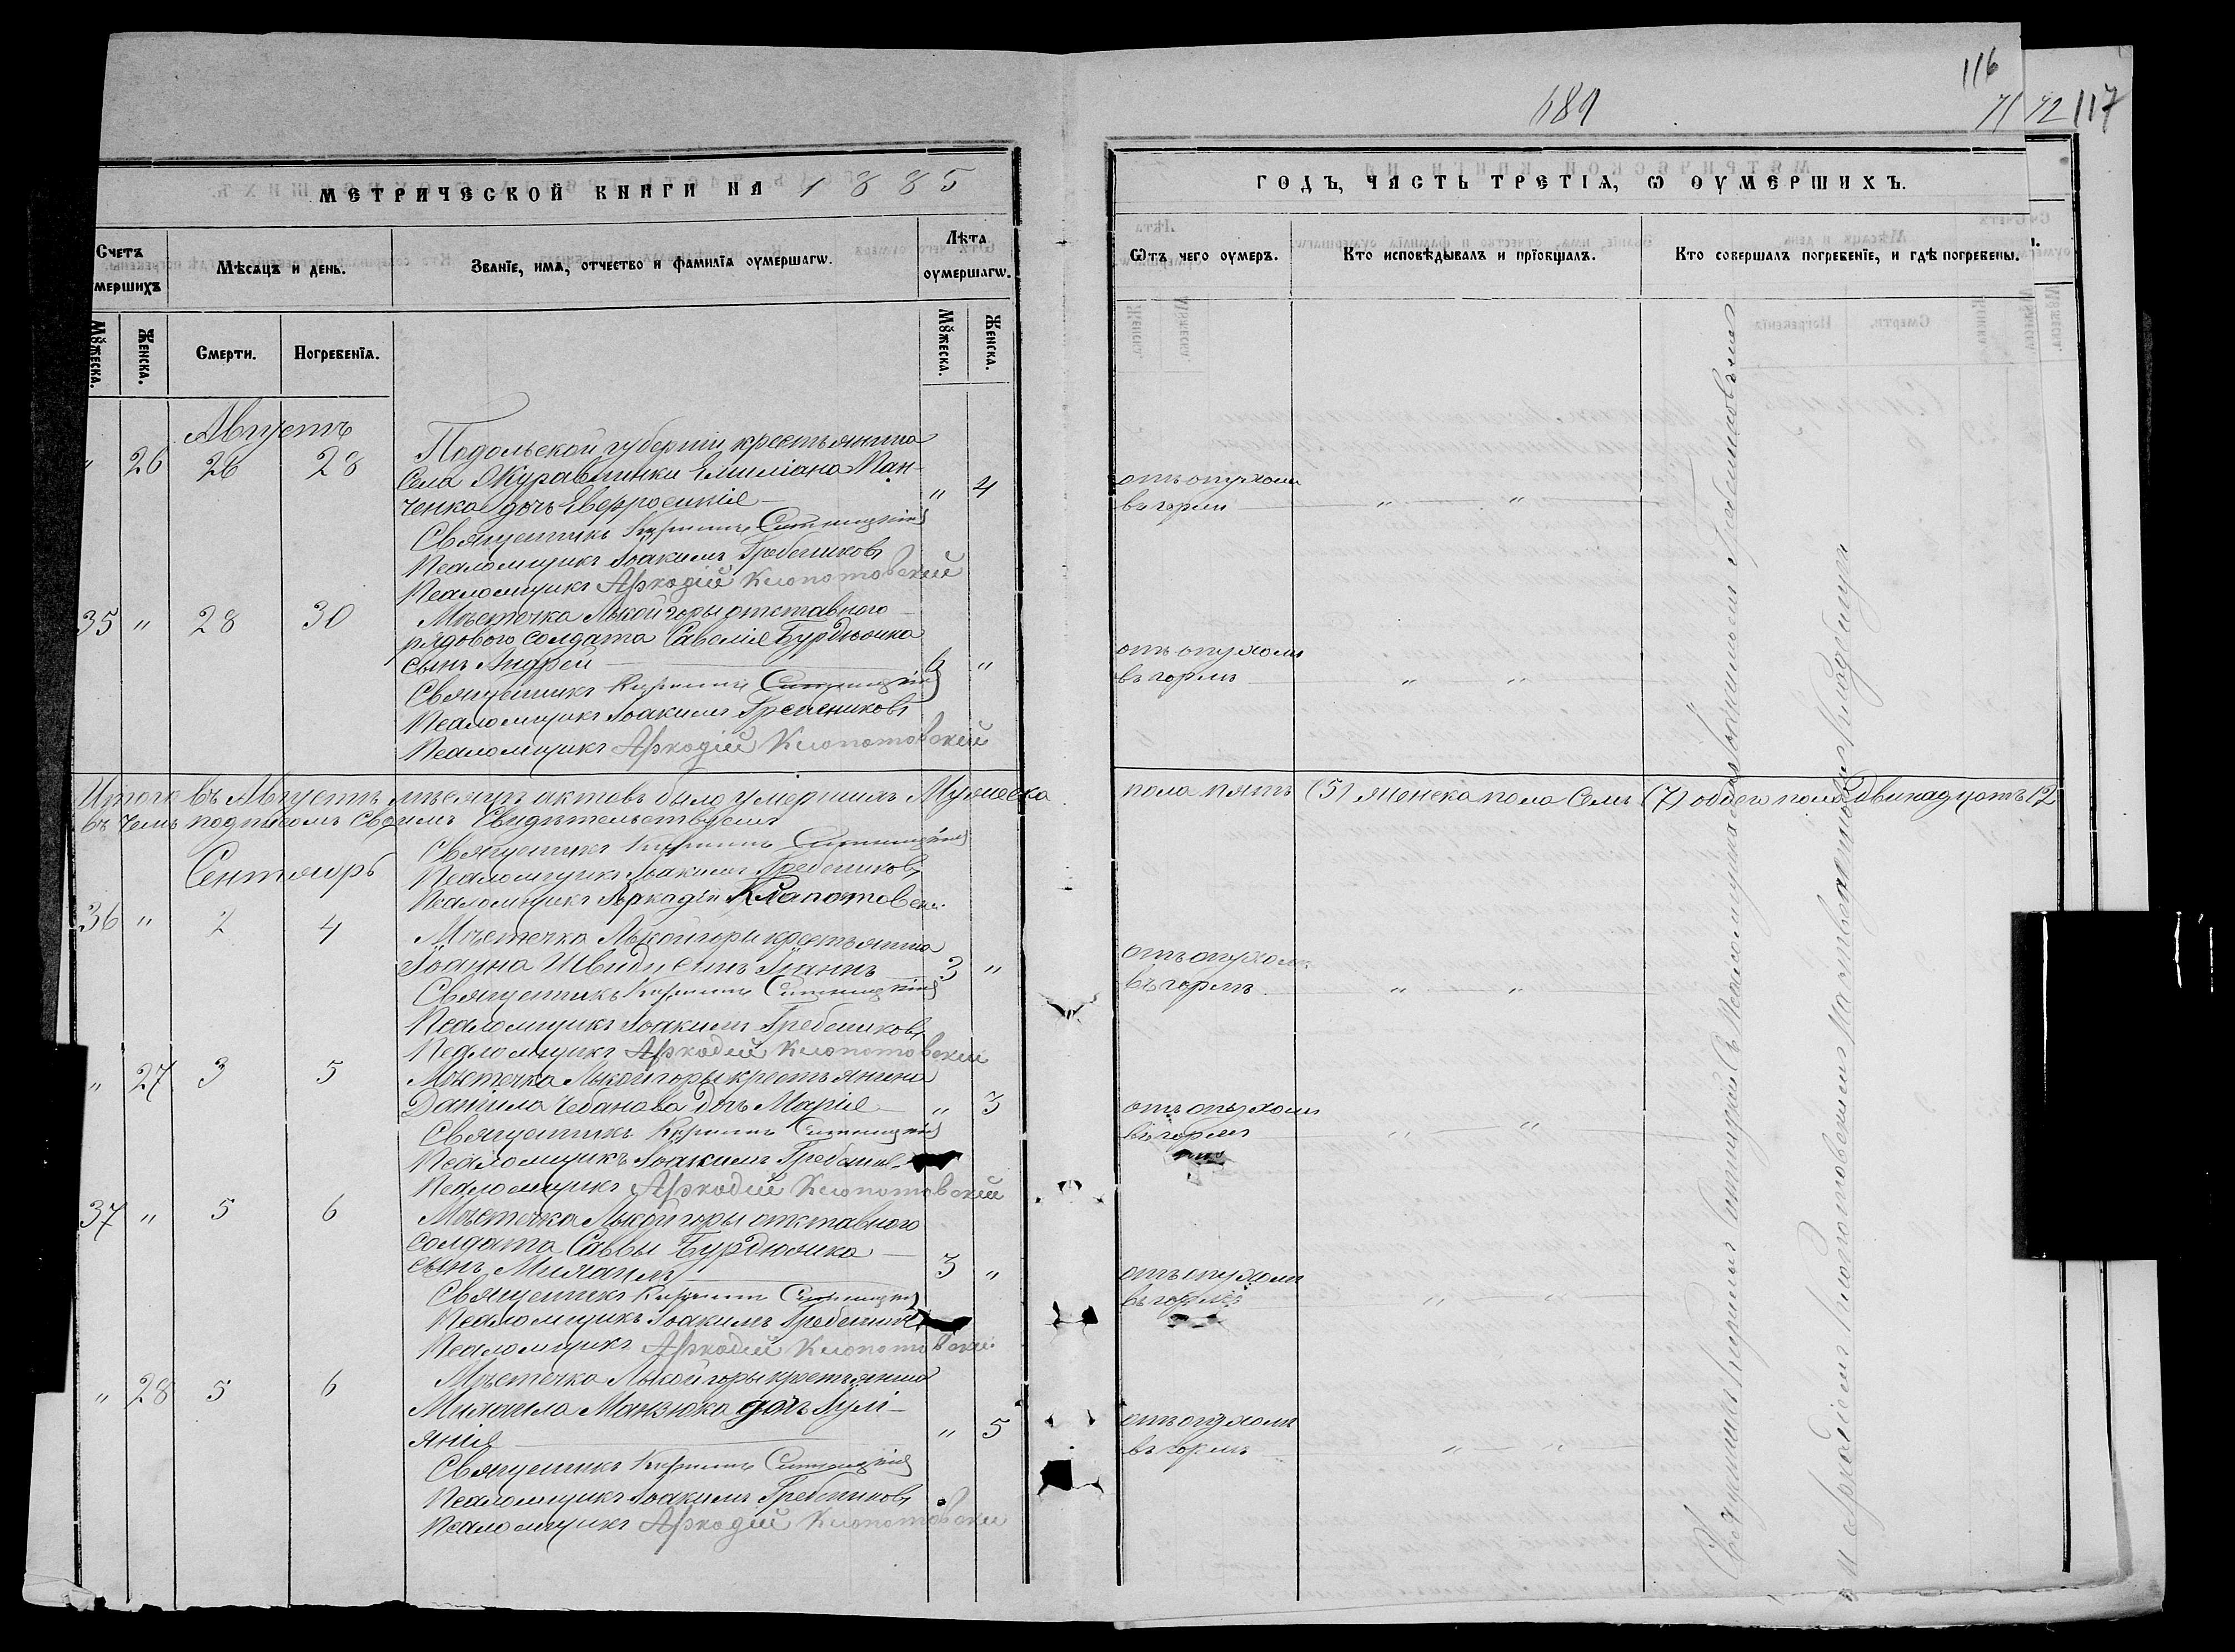 116
484
71 72 117
МЕТРИЧЕСКОЙ КНИГИ НА 1885
ГОДЪ, ЧАСТЬ ТРЕТІѦ, Ѡ ОУМЕРШИХЪ.
Счетъ
мершихъ
Мѣсяцъ и день.
Званіе, имѧ, отчество и фамиліѧ оумершагѡ.
Лѣта
оумершагѡ.
Ѿтъ чего оумеръ.
Кто исповѣдывалъ и пріобщалъ.
Кто совершалъ погребеніе, и гдѣ погребены.
Мꙋжеска.
Женска.
Смерти.
Погребеніѧ.
Мꙋжеска.
Женска.
Августъ
" 26 26 28
Подольской губерніи крестьянина
села Журавлинки Емиліана Пан-
ченка дочь Евфросинія " 4
отъ опухоли
въ горлѣ " "
Священникъ Кириллъ Ситницкій
Псаломщикъ Іоакимъ Гребениковъ
Псаломщикъ Аркадій Клопотовскій
35 " 28 30
Мѣстечка Лысой горы отставного
рядового солдата Савелія Бурдюжка
сынъ Андрей 6 "
отъ опухоли
въ горлѣ " "
Священникъ Кириллъ Ситницкій
Псаломщикъ Іоакимъ Гребениковъ
Псаломщикъ Аркадій Клопотовскій
Итого въ Августѣ мѣсяцѣ актовъ было умершихъ Мужеска пола пять (5) женска пола семь (7) обоего пола двинадцать 12
въ чемъ подписомъ своимъ свидѣтельствуемъ
Священникъ Кириллъ Ситницкій
Псаломщикъ Іоакимъ Гребениковъ
Псаломщикъ Аркадій Клопотовскій
Сентябрь
36 " 2 4
Мѣстечка Лысой горы крестьянина
Іоанна Швиды сынъ Іоаннъ 3 "
отъ опухоли
въ горлѣ " "
Священникъ Кириллъ Ситницкій
Псаломщикъ Іоакимъ Гребениковъ
Псаломщикъ Аркадій Клопотовскій
" 27 3 5
Мѣстечка Лысой горы крестьянина
Даніила Чебанова дочь Марія " 3
отъ опухоли
въ горлѣ " "
Священникъ Кириллъ Ситницкій
Псаломщикъ Іоакимъ Гребеник
Псаломщикъ Аркадій Клопотовскій
37 " 5 6
Мѣстечка Лысой горы отставного
солдата Саввы Бурдюжка
сынъ Михаилъ 3 "
отъ опухоли
въ горлѣ " "
Священникъ Кириллъ Ситницкій
Псаломщикъ Іоакимъ Гребеник
Псаломщикъ Аркадій Клопотовскій
" 28 5 6
Мѣстечка Лысой горы крестьянина
Михаила Манзюка дочь Іулі-
янія " 5
отъ опухоли
въ горлѣ " "
Священникъ Кириллъ Ситницкій
Псаломщикъ Іоакимъ Гребениковъ
Псаломщикъ Аркадій Клопотовскій
Священникъ Кириллъ Ситницкій съ Псаломщиками Іоакимомъ Гребениковымъ
и Аркадіемъ Клопотовскимъ на приходскомъ кладбищѣ